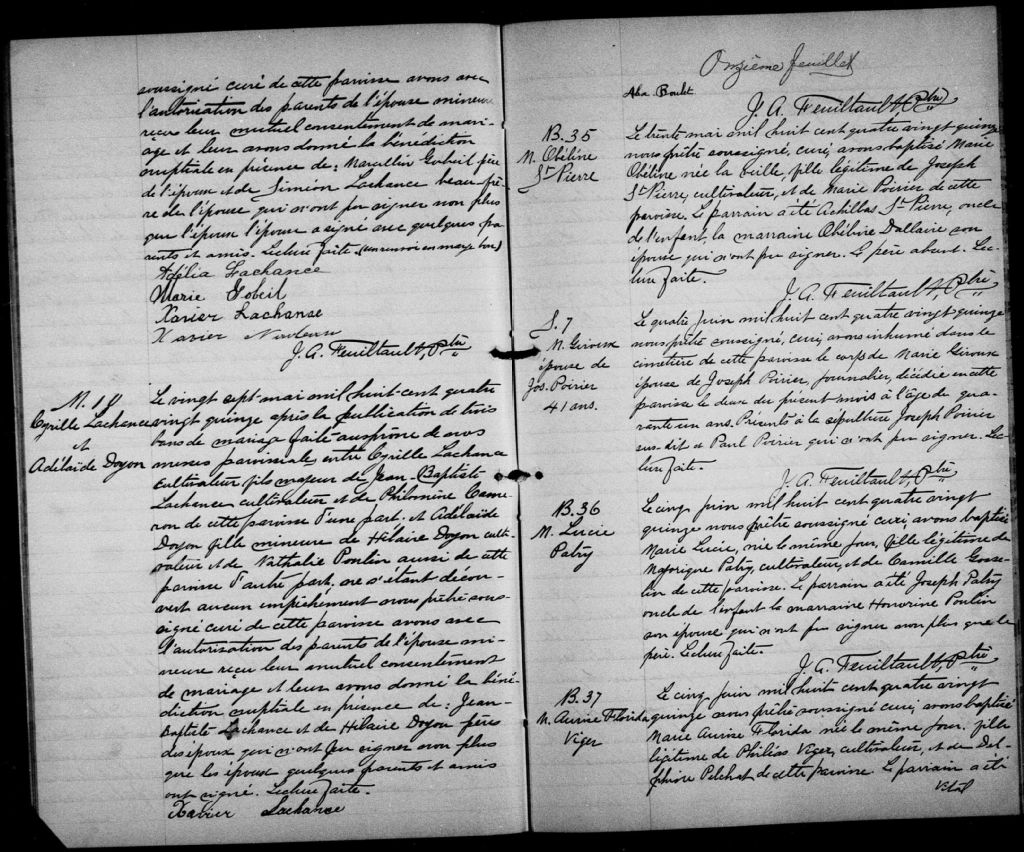 soussigné curé de cette paroisse avons avec
l'autorisation des parents de l'épouse mineure
reçu leur mutuel consentement de mari-
age et leur avons donné la bénédiction
nuptiale en présence de: Marcellin Gobeil père
de l'époux et de Siméon Lachance beau-frè-
re de l'épouse qui n'ont pu signer non plus
que l'époux l'épouse a signé avec quelques pa-
rents et amis. Lecture faite.
Adélia Lachance
Marie Gobeil
Xavier Lachanse
Xavier
J. A. Feuiltault, Ptre
M. 18
Cyrille Lachance
et
Adélaïde Doyon
Le vingt sept mai mil huit-cent quatre
vingt quinze après la publication de trois
bans de mariage faite au prône de nos
messes paroissiales entre Cyrille Lachance
cultivateur fils majeur de Jean-Baptiste
Lachance cultivateur et de Philomène Came-
ron de cette paroisse d'une part et Adélaïde
Doyon fille mineure de Hilaire Doyon culti-
vateur et de Nathalie Poulin aussi de cette
paroisse d'autre part, ne s'étant décou-
vert aucun empêchement nous prêtre sous-
signé curé de cette paroisse avons avec
l'autorisation des parents de l'épouse mi-
neure reçu leur mutuel consentement
de mariage et leur avons donné la béné-
diction nuptiale en présence de: Jean-
Baptiste Lachance et de Hilaire Doyon pères
des époux qui n'ont pu signer non plus
que les époux quelques parents et amis
ont signé. Lecture faite.
Xavier Lachance
Onzième feuillet
Aba Boulet
J. A. Feuiltault Ptre
B. 35
M. Obéline
St Pierre
Le trente mai mil huit cent quatre vingt quinze
nous prêtre soussigné, curé, avons baptisé Marie
Obéline née la veille, fille légitime de Joseph
St Pierre, cultivateur, et de Marie Poirier de cette
paroisse. Le parrain a été Achillas St Pierre, oncle
de l'enfant, la marraine Obébine Dallaire son
épouse qui n'ont pu signer. Le père absent. Lec-
ture faite.
J. A. Feuiltault, Ptre
S. 7
M. Giroux
épouse de
Jos. Poirier
41 ans.
Le quatre juin mil huit cent quatre vingt quinze
nous prêtre soussigné, curé, avons inhumé dans le
cimetière de cette paroisse le corps de Marie Giroux
épouse de Joseph Poirier, journalier, décédée en cette
paroisse le deux du présent mois à l'âge de qua-
rante un ans. Présents à la sépulture Joseph Poirier
sus-dit et Paul Poirier qui n'ont pu signer. Lec-
ture faite.
J. A. Feuiltault, Ptre
B. 36
M. Lucie
Patry
Le cinq juin mil huit cent quatre vingt
quinze nous prêtre soussigné curé, avons baptisé
Marie Lucie, née le même jour, fille légitime de
Majorique Patry, cultivateur, et de Camille Gosse-
lin de cette paroisse. Le parrain a été Joseph Patry
oncle de l'enfant la marraine Honorine Poulin
son épouse qui n'ont pu signer non plus que le
père. Lecture faite.
J. A. Feuiltault, Ptre
B. 37
M. Aurise Florida
Viger
Le cinq juin mil huit cent quatre vingt
quinze nous prêtre soussigné curé, avons baptisé
Marie Aurise Florida née le même jour, fille
légitime de Philéas Viger, cultivateur, et de Del-
phine Pelchat de cette paroisse. Le parrain a été
Vital